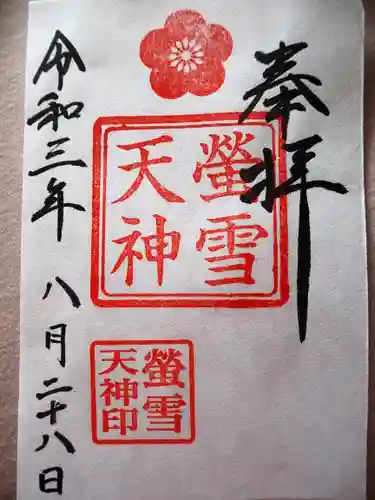 奉拝
螢雪
天神
螢雪
天神印
令和三年 八月二十八日